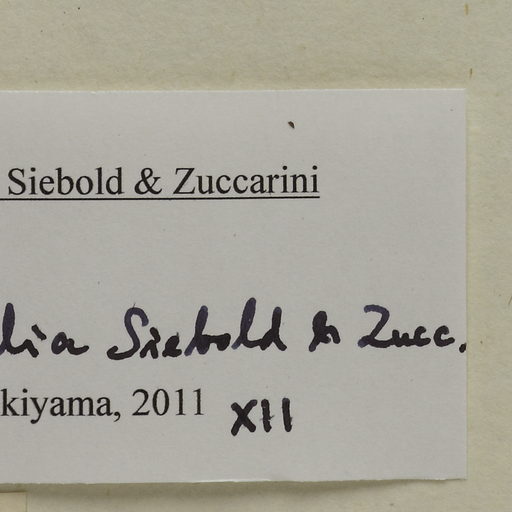 Siebold & Zuccarini
lia Siebold & Zucc.
kiyama, 2011 XII